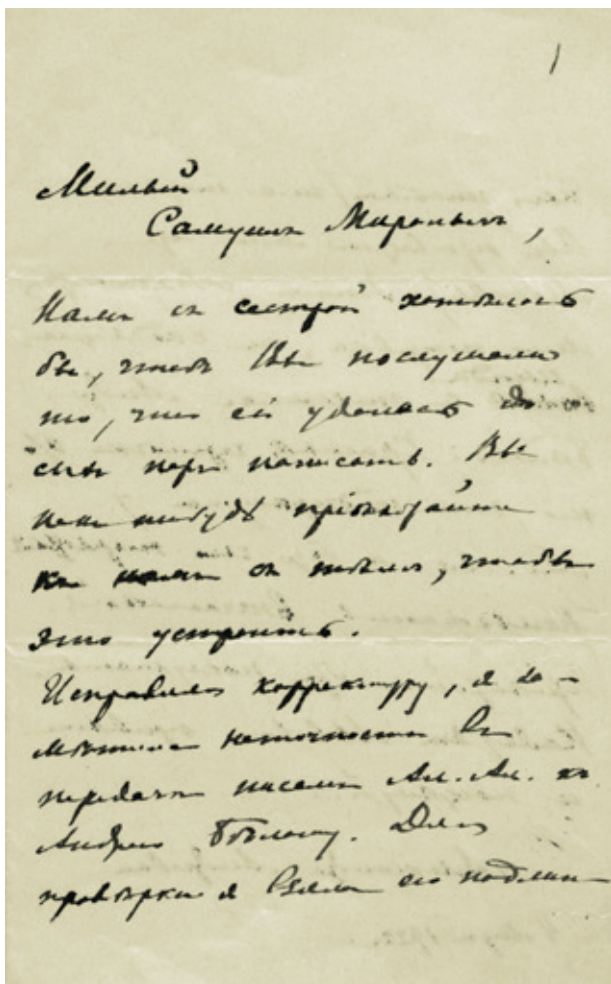 1
Милый
Самуилъ Миронычъ,
Намъ съ сестрой хотѣлось
бы, чтобъ Вы послушали
то, что ей удалось до
сихъ поръ написать. Вы
какъ нибудь пріѣзжайте
къ намъ съ тѣмъ, чтобы
это устроить.
Исправляя корректуру, я за-
мѣтила неточности въ
передачѣ писемъ Ал. Ал. къ
Андрею Бѣлому. Для
провѣрки я взяла его подлин-